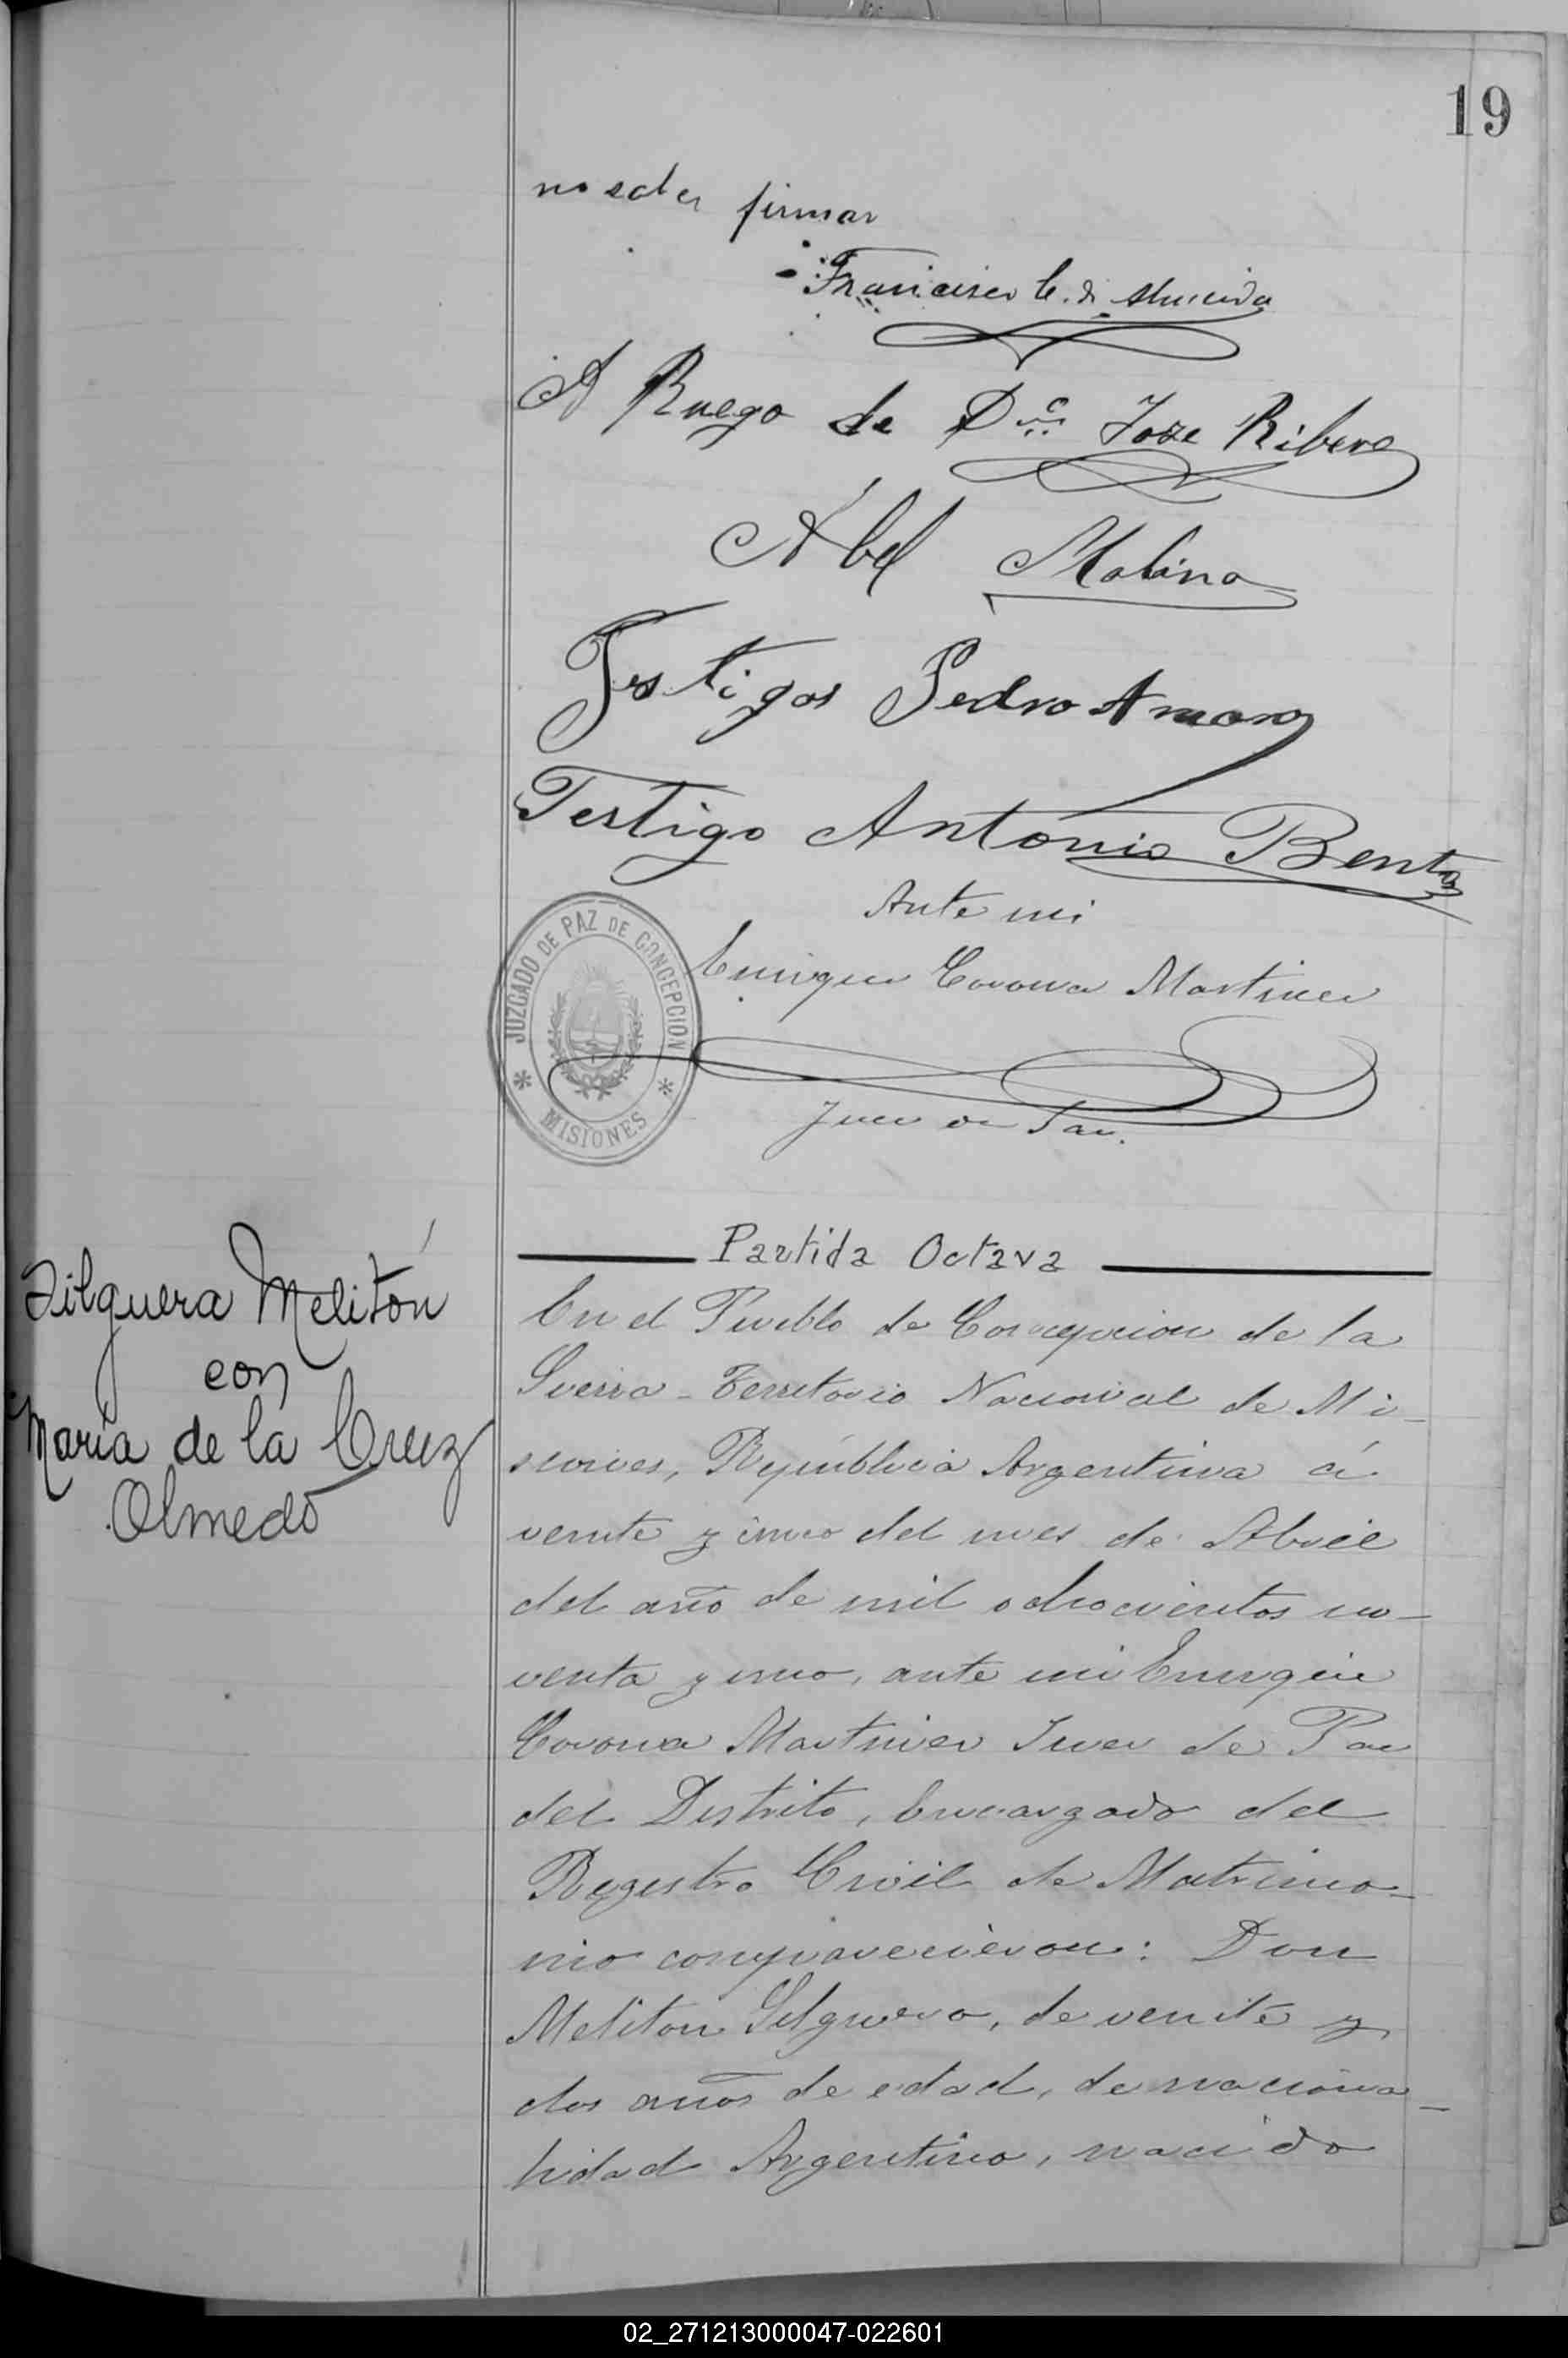 19
no saber firmar
Francisco C. de Almeida
A Ruego de Dn. Joze Ribero
Abel Molina
Testigos Pedro Amaro
Testigo Antonio Bento
Ante mi
Enrique Corona Martinez
JUZGADO DE PAZ DE CONCEPCION
MISIONES
Juez de Paz.
Partida Octava
Filguera Melitón
con
Maria de la Cruz
Olmedo
En el Pueblo de Concepcion de la
Sierra - Territorio Nacional de Mi-
siones, República Argentina á
veinte y cinco del mes de Abril
del año de mil ochocientos no-
venta y uno, ante mi Enrique
Corona Martinez Juez de Paz
del Distrito, Encargado del
Registro Civil de Matrimo-
nio comparecieron: Don
Meliton Silguero, de veinte y
dos años de edad, de naciona-
lidad Argentino, nacido
02_271213000047-022601